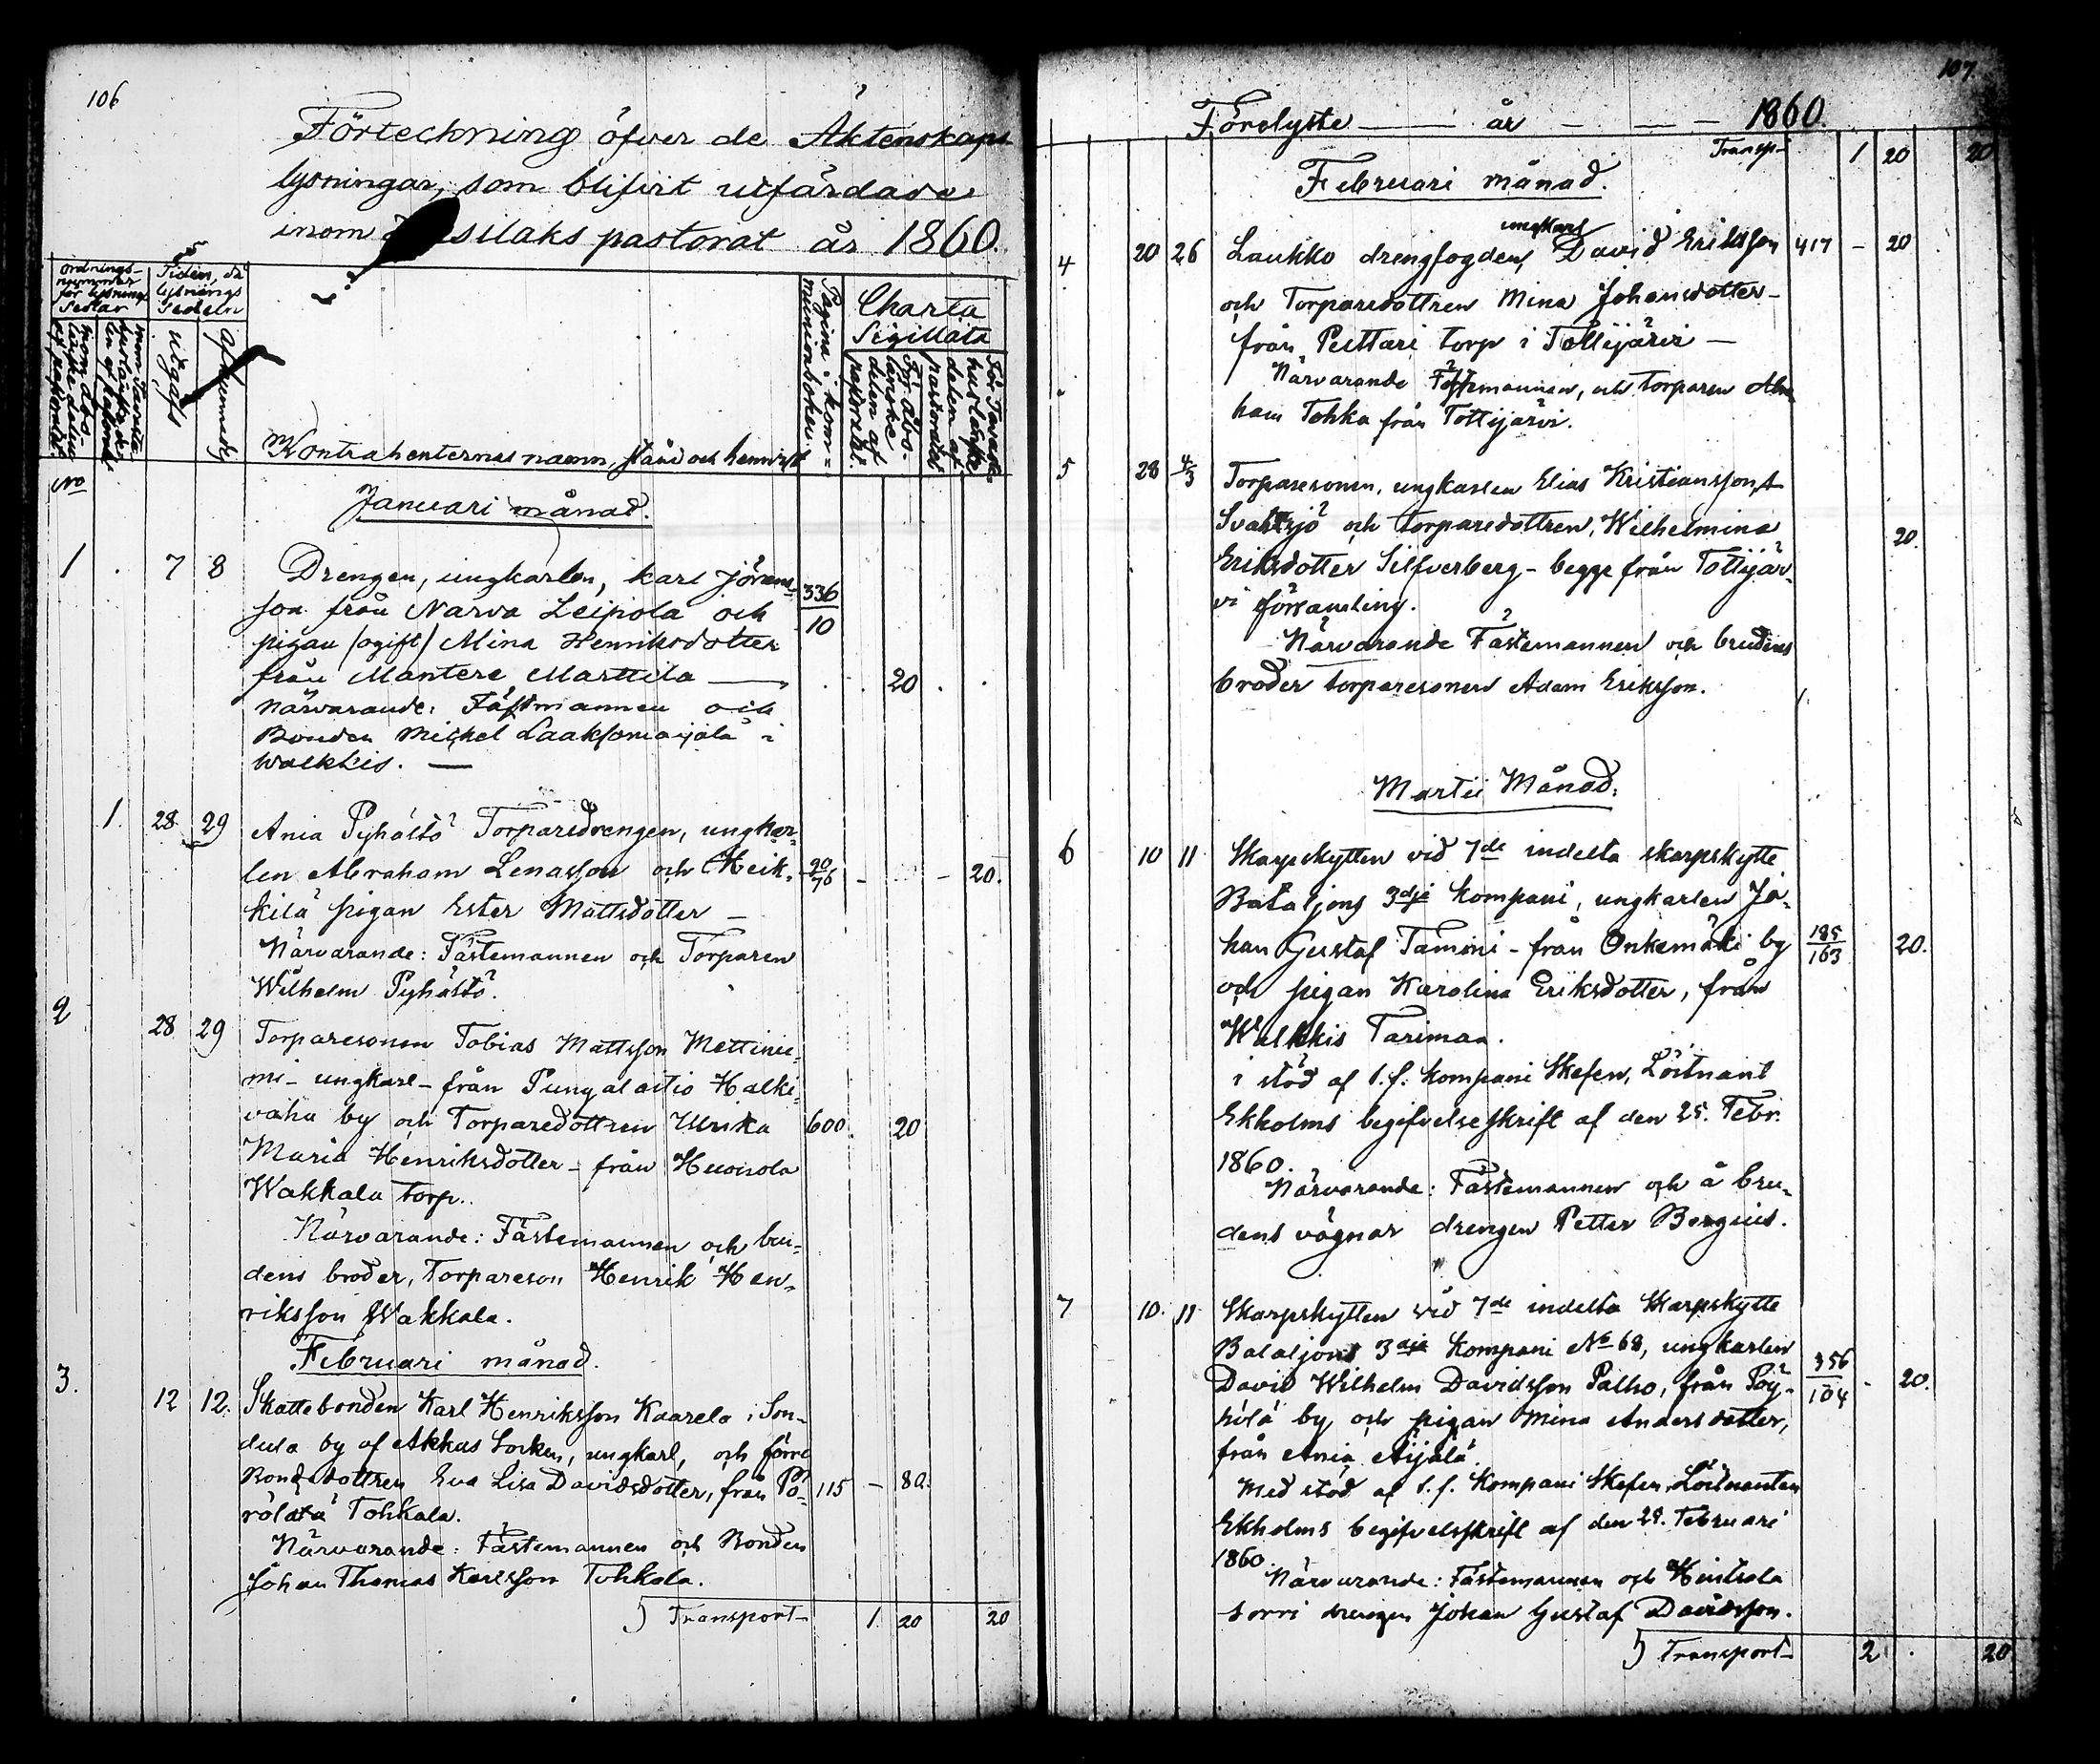 106
Förteckning öfver de Äktenskaps
lysningar, som blifvit utfärdade
inom silaks pastorat år 1860.
Ordnings-
nummer
för lysnings
Sedlar
Tiden, då
lysnings
Sedeln
utgafs
afkunnades
Kontrahenternas namn, stånd och hemvist
Pagina i kom=
munionboken.
Charta
Sigillata
För Åbo-
länske
delen af
pastoratet.
För Tavast-
huslänske
delen af
pastoratet
No
Januari månad.
1 . 7 8 Drengen, ungkarlen, Karl Jörans-
son från Narva Leipola och 336/10
pigan /ogift/ Mina Henriksdotter
från Mantere Marttila — 20
Närvarande: Fästmannen och
Bonden Michel Laaksomaijala i
Walkkis. —
1. 28. 29 Ania Pyhältö Torparedrengen, ungkar-
len Abraham Lenasson och Heik- 20/76 - - 20.
kilä pigan Ester Mattsdotter —
Närvarande: Fästemannen och Torparen
Wilhelm Pyhältö.
2 28 29 Torparesonen Tobias Mattsson Mettinie-
mi - ungkarl - från Pungalaitio Halki-
vaha by och Torparedottren Ulrika 600. 20
Maria Henriksdotter - från Huonola
Wakkala torp.
Närvarande: Fästemannen och bru-
dens broder, Torpareson Henrik Hen-
riksson Wakkala.
Februari månad.
3. 12 12. Skattebonden Karl Henriksson Kaarela i Son-
dula by af Akkas Socken, ungkarl, och förre
Bondedottren Eva Lisa Davidsdotter, från Po- 115 - 80.
Tohkala.
Närvarande: Fästemannen och Bonden
Johan Thomas Karlsson Tohkala.
Transport- 1. 20 20
107.
Förelyste — år — — 1860.
Transp- 1 20 20
Februari månad.
ungkarl
4 20 26 Laukko drengfogden, David Eriksson 417 - 20
och Torparedottren Mina Johansdotter -
från Pusttari torp i Tottijärvi —
Närvarande Fästemannen, och torparen Abra
ham Tohka från Tottijärvi.
5 28 4/3 Torparesonen, ungkarlen Elias Kristiansson
Svartsjö och torparedottren, Wilhelmina 20.
Eriksdotter Silfverberg - begge från Tottijär-
vi församling.
Närvarande Fästemannen och brudens
broder torparesonen Adam Eriksson.
Martii Månad.
6 10 11 Skarpskytten vid 7de indelta skarpskytte
Bataljons 3dje Kompani, ungkarlen Jo-
han Gustaf Tammi - från Onkemäki by 185/163 20.
och pigan Karolina Eriksdotter, från
Walkkis Tarimaa.
i stöd af t.f. Kompani Skefen, Löitnant
Ekholms begifvelseskrift af den 25. Febr.
1860.
Närvarande: Fästemannen och å bru-
dens vägnar drengen Petter Bergius.
7 10. 11 Skarpskytten vid 7de indelta Skarpskytte
Bataljons 3dje Kompani No 68, ungkarlen
David Wilhelm Davidsson Palho, från Pöy- 356/104 - 20.
hölä by och pigan Mina Andersdotter,
från Ania Äijälä.
Med stöd af t.f. Kompani Skefen, Löitnanten
Ekholms begifvelsskrift af den 29. Februari
1860.
Närvarande: Fästemannen och Heinsola
Sorri drengen Johan Gustaf Davidsson.
Transport- 2 . 20